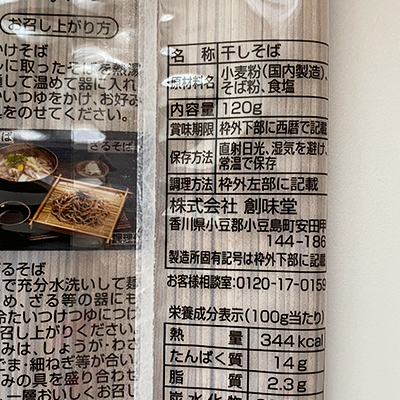 お召し上がり方
かけそば
ルに取ったそばを熱湯
通して温めて器に入れ
かいつゆをかけ、お好み
をのせてください。
ざるそば
ざるそば
で充分水洗いして麺
め、ざる等の器にも
冷たいつけつゆにつけ
召し上がりください。
みは、しょうが・わさ
ごま・細ねぎ等が合い
みの具を盛り合わせ
一層おいしくお召し
名 称 干しそば
原材料名 小麦粉(国内製造)、
そば粉、食塩
内容量 120g
賞味期限 枠外下部に西暦で記載
保存方法 直射日光、湿気を避け、
常温で保存
調理方法 枠外左部に記載
株式会社 創味堂
香川県小豆郡小豆島町安田甲
144-186
製造所固有記号は枠外下部に記載
お客様相談室:0120-17-0159
栄養成分表示(100g当たり)
熱 量 344kcal
たんぱく質 14g
脂 質 2.3g
炭水化物